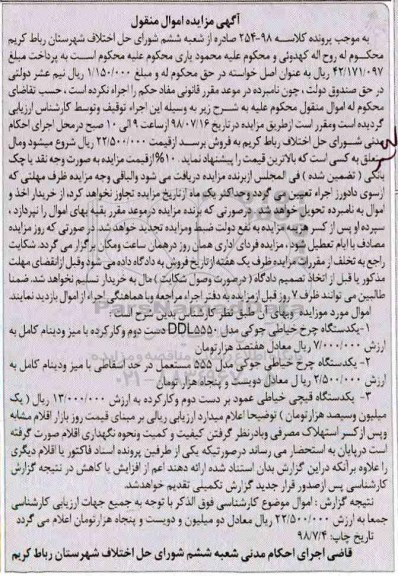 آگهی مزایده اموال منقول
به موجب پرونده کلاسه ۹۸-۲۵۴ صادره از شعبه ششم شورای حل اختلاف شهرستان رباط کریم
محکوم له روح اله کهدوئی و محکوم علیه محمود یاری محکوم علیه محکوم است به پرداخت مبلغ
۴۲/۱۷۱/۰۹۷ ریال به عنوان اصل خواسته در حق محکوم له و مبلغ ۱/۱۵۰/۰۰۰ ریال نیم عشر دولتی
در حق صندوق دولت ، چون نامبرده در موعد مقرر قانونی مفاد حکم را اجراء نکرده است ، حسب تقاضای
محکوم له اموال منقول محکوم علیه به شرح زیر به وسیله این اجراء توقیف وتوسط کارشناس ارزیابی
گردیده است ومقرر است ازطریق مزایده در تاریخ ۹۸/۰۷/۱۶ ازساعت ۹ الی ۱۰ صبح درمحل اجرای احکام
مدنی شورای حل اختلاف رباط کریم به فروش برسد .ازقیمت ۲۲/۵۰۰/۰۰۰ ریال شروع میشود ومال
متعلق به کسی است که بالاترین قیمت را پیشنهاد نماید . ۱۰% ازقیمت مزایده به صورت وجه نقد یا چک
بانکی ( تضمین شده ) فی المجلس ازبرنده مزایده دریافت می شود والباقی وجه مزایده ظرف مهلتی که
ازسوی دادورز اجراء تعیین می گردد وحداکثر یک ماه ازتاریخ مزایده تجاوز نخواهد کرد، از خریدار اخذ و
اموال به نامبرده تحویل خواهد شد. درصورتی که برنده مزایده درموعد مقرر بقیه بهای اموال را نپردازد ،
سپرده او پس از کسر هزینه مزایده به نفع دولت ضبط ومزایده تجدید خواهد شد. در صورتی که روز مزایده
مصادف با ایام تعطیل شود ، مزایده فردای اداری همان روز درهمان ساعت ومکان برگزار می گردد. شکایت
راجع به تخلف از مقررات مزایده ظرف یک هفته ازتاریخ فروش به دادگاه داده می شود وقبل ازانقضای مهلت
مذکور یا قبل از اتخاذ تصمیم دادگاه ( درصورت وصول شکایت ) مال به خریدار تسلیم نخواهد شد. ضمنا
طالبین می توانند ظرف ۷ روز قبل ازمزایده به دفتر اجراء مراجعه وبا هماهنگی اجراء از اموال بازدید نمایند.
اموال مورد مزایده وبهای آن طبق نظر کارشناس به این شرح است
۱-یکدستگاه چرخ خیاطی جوکی مدل DDL۵۵۵۰ دست دوم وکارکرده با میز ودینام کامل به
ارزش ۷/۰۰۰/۰۰۰ ریال معادل هفتصد هزارتومان
۲- یکدستگاه چرخ خیاطی جوکی مدل ۵۵۵ مستعمل در حد اسقاطی با میز ودینام کامل به
ارزش ۲/۵۰۰/۰۰۰ ریال معادل دویست و پنجاه هزار تومان
۳- یکدستگاه قیچی خیاطی عمود بر دست دوم وکارکرده به ارزش ۱۳/۰۰۰/۰۰۰ ریال ( یک
میلیون وسیصد هزارتومان ) توضیحا اعلام میدارد ارزیابی ریالی بر مبنای قیمت روز بازار اقلام مشابه
وپس ازکسر استهلاک مصرفی وبادرنظر گرفتن کیفیت و کمیت ونحوه نگهداری اقلام صورت گرفته
است درپایان به استحضار می رساند درصورتیکه یکی از طرفین پرونده اسناد فاکتور یا اقلام دیگری
را علاوه برآنکه دراین گزارش بدان استناد شده ارائه دهند اعم از افزایش یا کاهش در نتیجه گزارش
کارشناسی پس ازصدور قرار جدید گزارش تکمیلی تقدیم خواهدشد.
نتیجه گزارش : اموال موضوع کارشناسی فوق الذکر با توجه به جمیع جهات ارزیابی کارشناسی
جمعا به ارزش ۲۲/۵۰۰/۰۰۰ ریال معادل دو میلیون و دویست و پنجاه هزارتومان اعلام می گردد
تاریخ چاپ: ۹۸/۷/۴
قاضی اجرای احکام مدنی شعبه ششم شورای حل اختلاف شهرستان رباط کریم